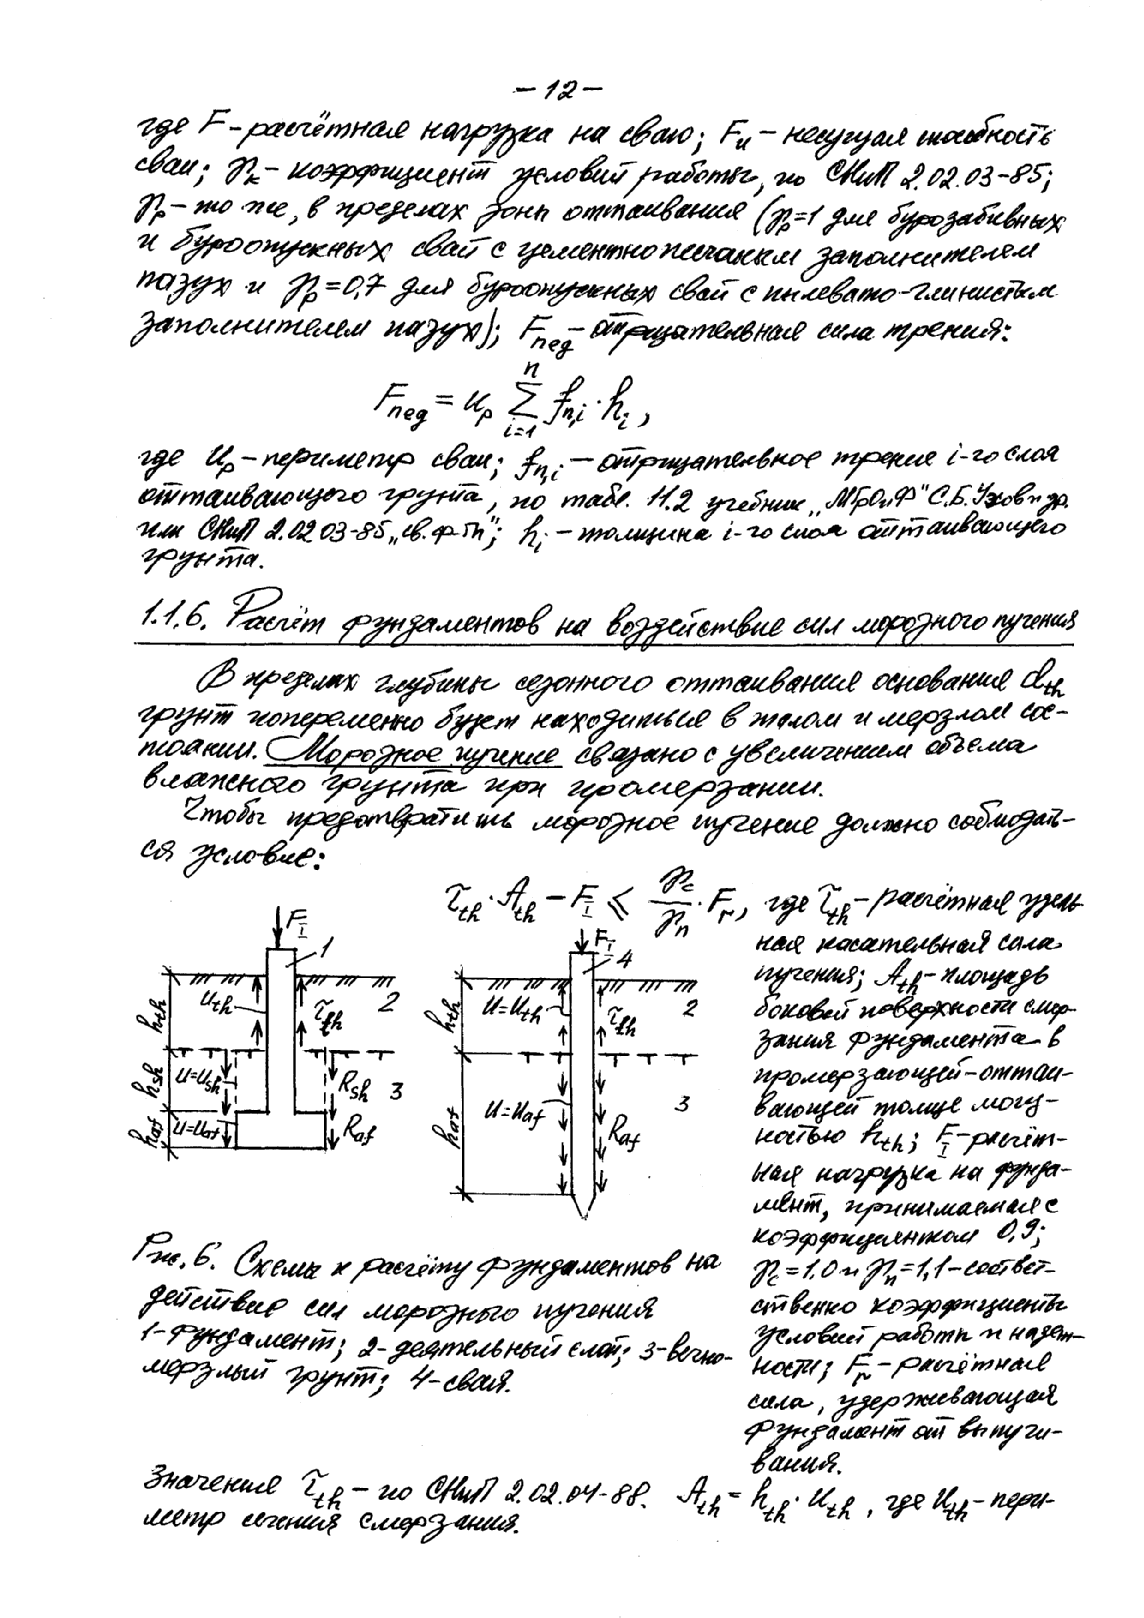 – 12 –
где F – расчётная нагрузка на сваю; Fu – несущая способность
сваи; γк – коэффициент условий работы, по СНиП 2.02.03-85;
γр – то же, в пределах зоны оттаивания (γр=1 для бурозабивных
и буроопускных свай с цементнопесчаным заполнителем
пазух и γр=0,7 для буроопускных свай с пылевато-глинистым
заполнителем пазух); Fneg – отрицательная сила трения:
Fneg = up ∑ (i=1, n) fn,i · hi ,
где up – периметр сваи; fn,i – отрицательное трение i-го слоя
оттаивающего грунта, по табл. 11.2 учебник „МГрОиФ“ С.Б. Ухов и др.
или СНиП 2.02 03-85 „св. ф-ты“; hi – толщина i-го слоя оттаивающего
грунта.
1.1.6. Расчёт фундаментов на воздействие сил морозного пучения
В пределах глубины сезонного оттаивания основания dth
грунт попеременно будет находиться в талом и мерзлом сос-
тоянии. Морозное пучение связано с увеличением объема
влажного грунта при промерзании.
Чтобы предотвратить морозное пучение должно соблюдать-
ся условие:
τth · Ath – FI ≤ γc/γn · Fr, где τth – расчётная удель-
ная касательная сила
пучения; Ath – площадь
боковой поверхности смер-
зания фундамента в
промерзающей-оттаи-
вающей толще мощ-
ностью hth; FI – расчёт-
ная нагрузка на фунда-
мент, принимаемая с
коэффициентом 0,9;
γc = 1.0 и γn = 1,1 – соответ-
ственно коэффициенты
условий работы и надеж-
ности; Fr – расчётная
сила, удерживающая
фундамент от выпучи-
вания.
FI
1
hth
uth
τth
2
hsh
u=ush
Rsh
3
haf
u=uaf
Raf
FI
4
hth
u=uth
τth
2
haf
u=uaf
Raf
3
Рис. 6. Схема к расчёту фундаментов на
действие сил морозного пучения
1-фундамент; 2-деятельный слой; 3-вечно-
мерзлый грунт; 4-свая.
Значения τth – по СНиП 2.02.04-88. Ath = hth · uth , где uth – пери-
метр сечения смерзания.